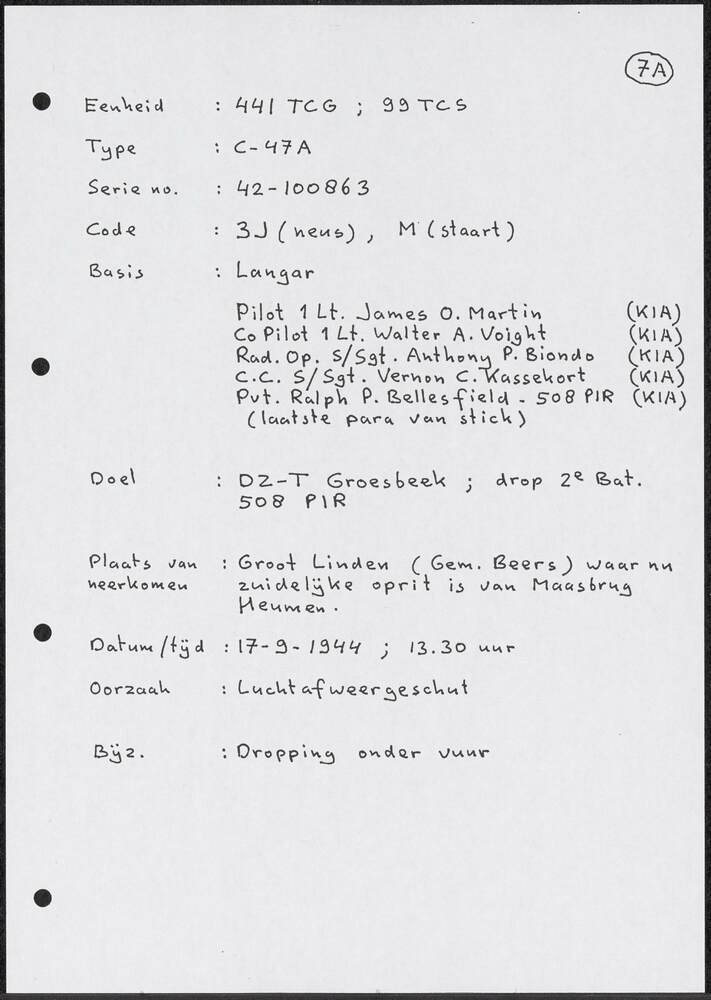 7A
Eenheid : 441 TCG ; 99 TCS
Type : C-47A
Serie no. : 42-100863
Code : 3J (neus) , M (staart)
Basis : Langar
Pilot 1 Lt. James O. Martin (KIA)
Co Pilot 1 Lt. Walter A. Voight (KIA)
Rad. Op. S/Sgt. Anthony P. Biondo (KIA)
C.C. S/Sgt. Vernon C. Kassekort (KIA)
Pvt. Ralph P. Bellesfield - 508 PIR (KIA)
(laatste para van stick)
Doel : DZ-T Groesbeek ; drop 2e Bat.
508 PIR
Plaats van : Groot Linden (Gem. Beers) waar nu
neerkomen zuidelijke oprit is van Maasbrug
Heumen.
Datum/tijd : 17-9-1944 ; 13.30 uur
Oorzaak : Luchtafweergeschut
Bijz. : Dropping onder vuur